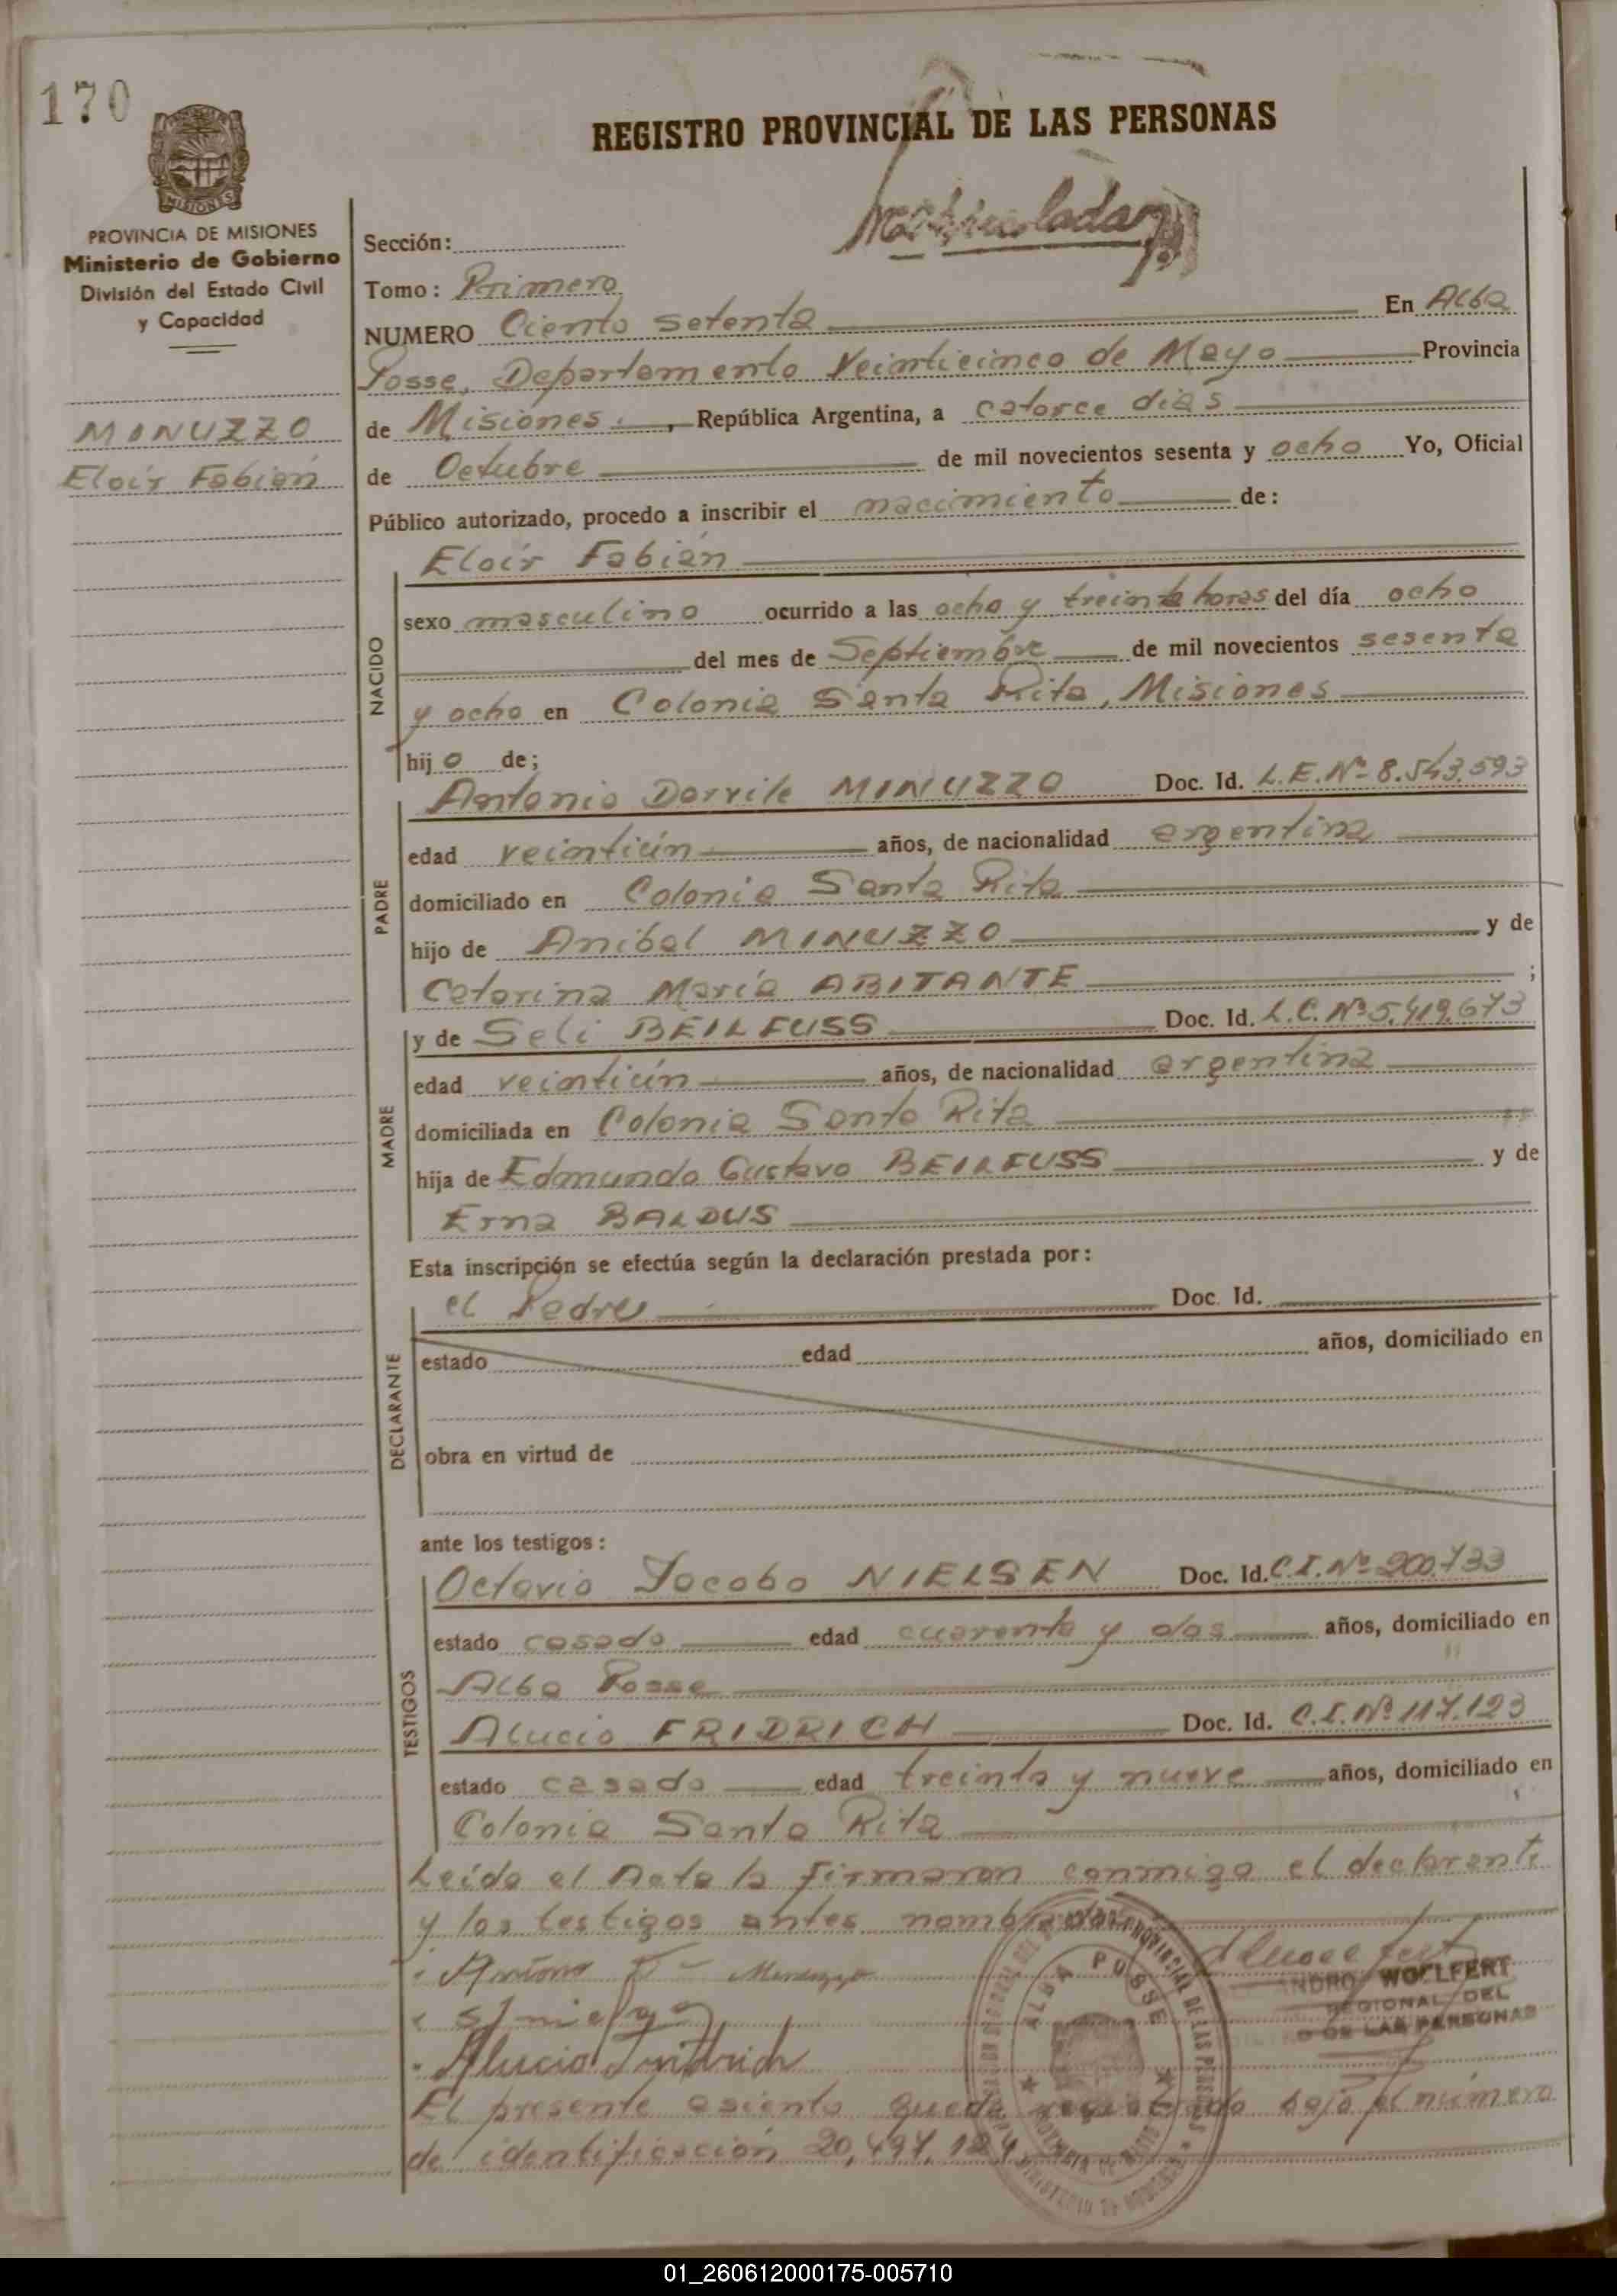 170
REGISTRO PROVINCIAL DE LAS PERSONAS
MISIONES
PROVINCIA DE MISIONES
Ministerio de Gobierno
División del Estado Civil
y Capacidad
MINUZZO
Eloir Fabián
Matriculada
Sección:
Tomo: Primero
NUMERO Ciento setenta En Alba
Posse, Departamento Veinticinco de Mayo Provincia
de Misiones, República Argentina, a catorce dias
de Octubre de mil novecientos sesenta y ocho Yo, Oficial
Público autorizado, procedo a inscribir el nacimiento de:
Eloir Fabián
NACIDO
sexo masculino ocurrido a las ocho y treinta horas del día ocho
del mes de Septiembre de mil novecientos sesenta
y ocho en Colonia Santa Rita, Misiones
hijo de;
PADRE
Antonio Dorvile MINUZZO Doc. Id. L.E.Nº 8.543.593
edad veintiún años, de nacionalidad argentina
domiciliado en Colonia Santa Rita
hijo de Anibal MINUZZO y de
Catarina María ABITANTE ;
MADRE
y de Seli BEILFUSS Doc. Id. L.C.Nº 5.419.673
edad veintiún años, de nacionalidad argentina
domiciliada en Colonia Santa Rita
hija de Edmundo Gustavo BEILFUSS y de
Erna BALDUS
Esta inscripción se efectúa según la declaración prestada por:
DECLARANTE
el Padre Doc. Id.
estado edad años, domiciliado en
obra en virtud de
ante los testigos:
TESTIGOS
Octavio Jacobo NIELSEN Doc. Id. C.I.Nº 200.733
estado casado edad cuarenta y dos años, domiciliado en
Alba Posse
Alucio FRIDRICH Doc. Id. C.I.Nº 117.123
estado casado edad treinta y nueve años, domiciliado en
Colonia Santa Rita
Leída el Acta la firmaron conmigo el declarante
y los testigos antes nombrados
ALBA POSSE
WOELFERT
REGIONAL DEL
DE LAS PERSONAS
Alucio Fridrich
El presente asiento queda registrado bajo el número
de identificación 20,497,124
01_260612000175-005710